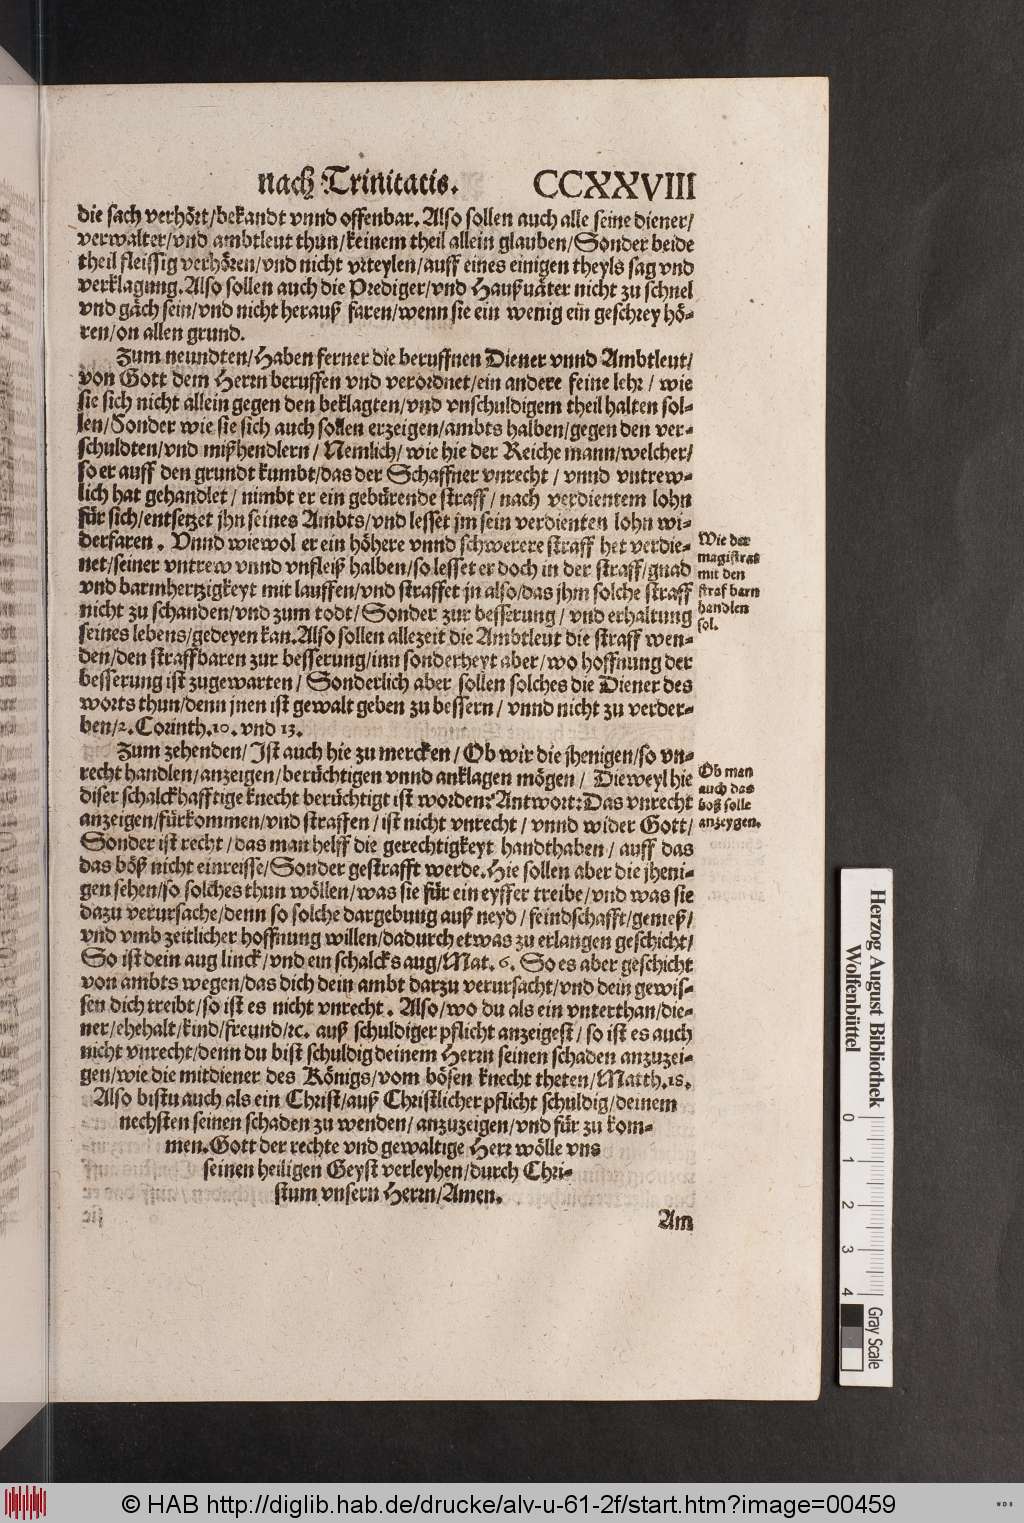 nach Trinitatis. CCXXVIII
die sach verhört/bekandt vnnd offenbar. Also sollen auch alle seine diener/
verwalter/vnd ambtleut thun/keinem theil allein glauben/Sonder beide
theil fleissig verhören/vnd nicht vrteylen/auff eines einigen theyls sag vnd
verklagung. Also sollen auch die Prediger/vnd Haußuäter nicht zu schnel
vnd gäch sein/vnd nicht herauß faren/wenn sie ein wenig ein geschrey hö-
ren/on allen grund.
Zum neundten/Haben ferner die beruffnen Diener vnnd Ambtleut/
von Gott dem Herrn beruffen vnd verordnet/ein andere feine lehr/ wie
sie sich nicht allein gegen den beklagten/vnd vnschuldigem theil halten sol-
len/Sonder wie sie sich auch sollen erzeigen/ambts halben/gegen den ver-
schuldten/vnd mißhendlern/ Nemlich/ wie hie der Reiche mann/welcher/
so er auff den grundt kumbt/das der Schaffner vnrecht/ vnnd vntrew-
lich hat gehandlet/ nimbt er ein gebürende straff/ nach verdientem lohn
für sich/entsetzet jhn seines Ambts/vnd lesset jm sein verdienten lohn wi-
derfaren. Vnnd wiewol er ein höhere vnnd schwerere straff het verdie-
net/seiner vntrew vnnd vnfleiß halben/so lesset er doch in der straff/gnad
vnd barmhertzigkeyt mit lauffen/vnd straffet jn also/das jhm solche straff
nicht zu schanden/vnd zum todt/Sonder zur besserung/ vnd erhaltung
seines lebens/gedeyen kan. Also sollen allezeit die Ambtleut die straff wen-
den/den straffbaren zur besserung/inn sonderheyt aber/wo hoffnung der
besserung ist zugewarten/ Sonderlich aber sollen solches die Diener des
worts thun/denn jnen ist gewalt geben zu bessern/ vnnd nicht zu verder-
ben/2. Corinth. 10. vnd 13.
Wie der
magistrat
mit den
straf barn
handlen
sol.
Zum zehenden/Ist auch hie zu mercken/Ob wir die jhenigen/so vn-
recht handlen/anzeigen/berüchtigen vnnd anklagen mögen/ Dieweyl hie
diser schalckhafftige knecht berüchtigt ist worden? Antwort: Das vnrecht
anzeigen/fürkommen/vnd straffen/ ist nicht vnrecht/ vnnd wider Gott/
Sonder ist recht/das man helff die gerechtigkeyt handthaben/ auff das
das böß nicht einreisse/Sonder gestrafft werde. Hie sollen aber die jheni-
gen sehen/so solches thun wöllen/was sie für ein eyffer treibe/vnd was sie
dazu verursache/denn so solche dargebung auß neyd/feindschafft/genieß/
vnd vmb zeitlicher hoffnung willen/dadurch etwas zu erlangen geschicht/
So ist dein aug linck/vnd ein schalcks aug/Mat. 6. So es aber geschicht
von ambts wegen/das dich dein ambt darzu verursacht/vnd dein gewis-
sen dich treibt/so ist es nicht vnrecht. Also/wo du als ein vnterthan/die-
ner/ehehalt/kind/freund/rc. auß schuldiger pflicht anzeigest/ so ist es auch
nicht vnrecht/denn du bist schuldig deinem Herrn seinen schaden anzuzei-
gen/wie die mitdiener des Königs/vom bösen knecht theten/Matth. 18.
Also bistu auch als ein Christ/auß Christlicher pflicht schuldig/deinem
nechsten seinen schaden zu wenden/anzuzeigen/vnd für zu kom-
men. Gott der rechte vnd gewaltige Herr wölle vns
seinen heiligen Geyst verleyhen/durch Chri-
stum vnsern Herrn/Amen.
Ob man
auch das
böß solle
anzeygen.
Am
Herzog August Bibliothek
Wolfenbüttel
0 1 2 3 4
Gray Scale
© HAB http://diglib.hab.de/drucke/alv-u-61-2f/start.htm?image=00459
WDB